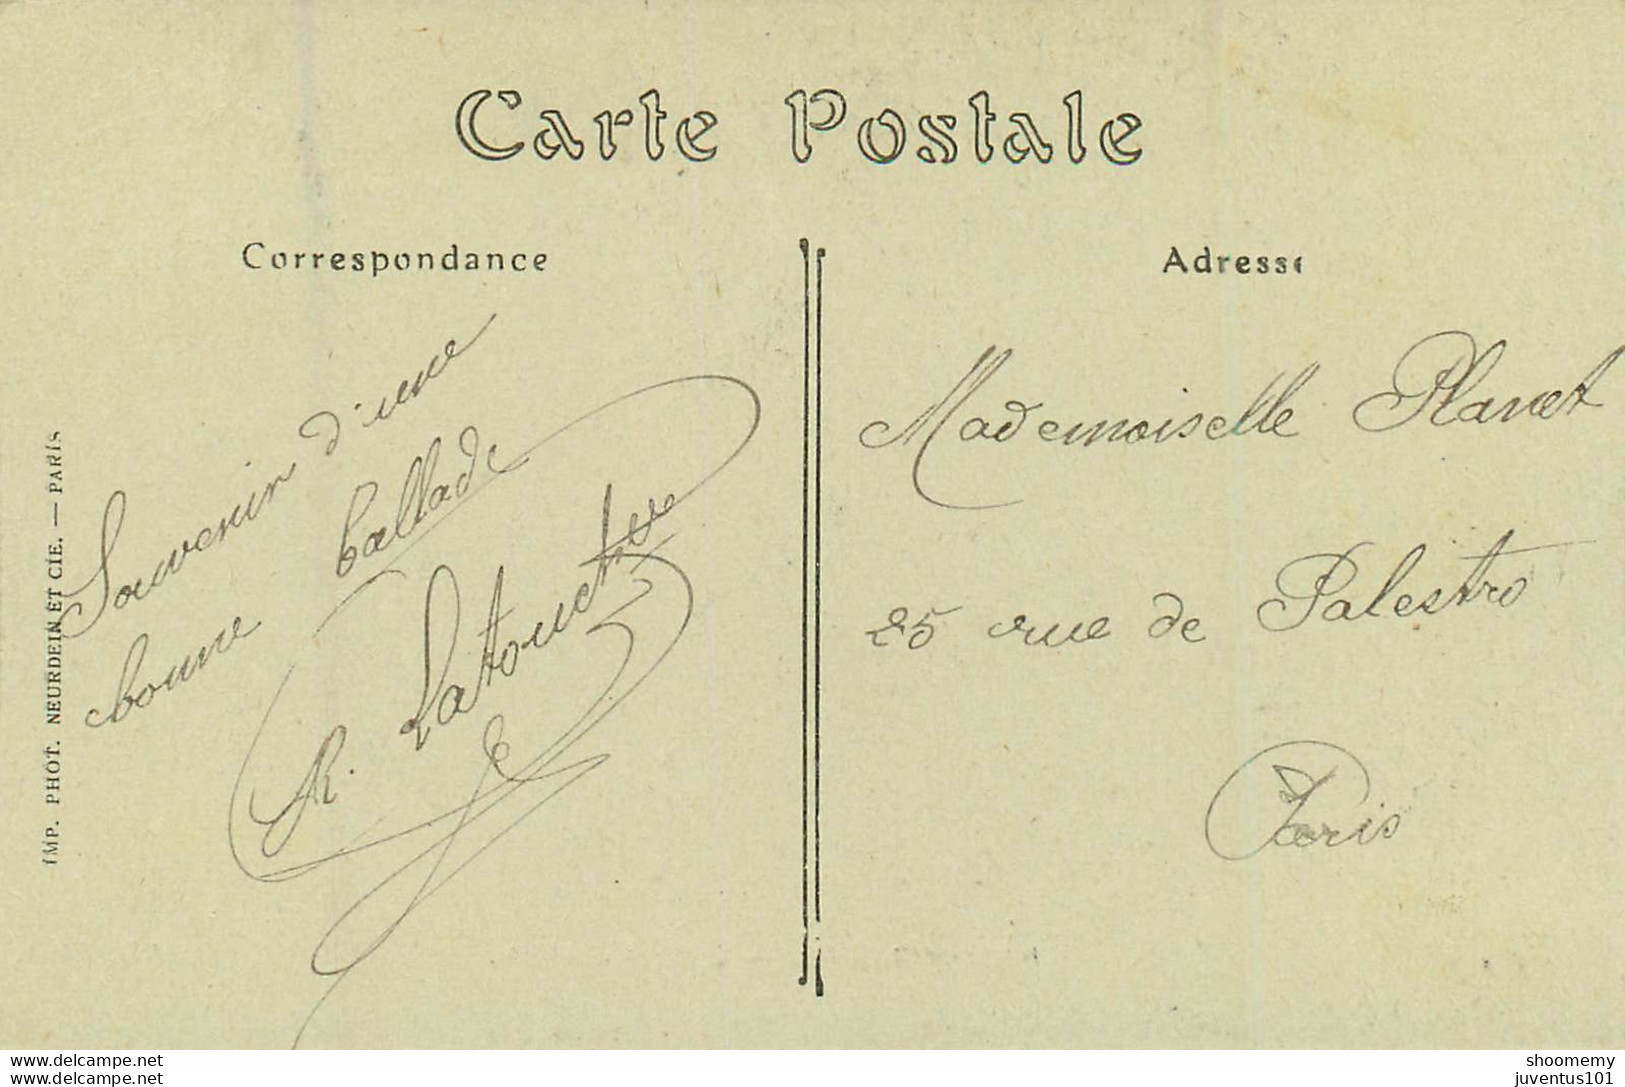 Carte Postale
Correspondance
Adresse
Souvenir d'une
bonne ballade
R. Latouche
Mademoiselle Planet
25 rue de Palestro
Paris
IMP. PHOT. NEURDEIN ET CIE. — PARIS
www.delcampe.net
www.delcampe.net
shoomemy
juventus101